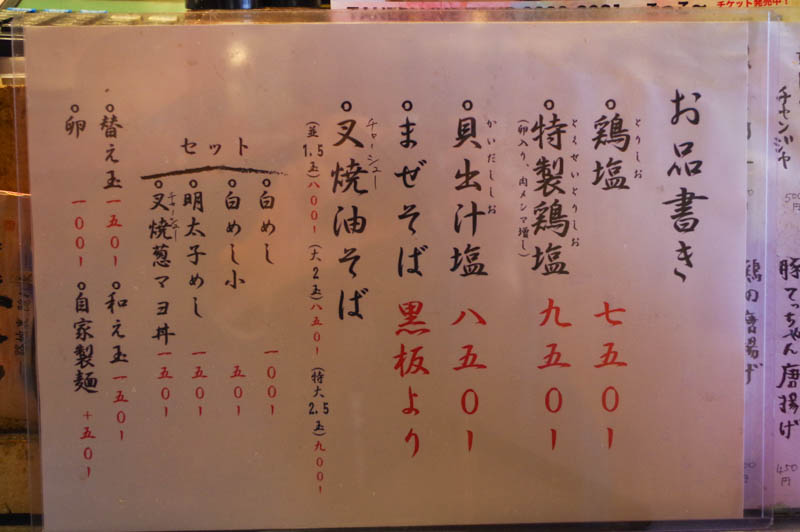 お品書き
鶏塩 七五〇ー
とりしお
特製鶏塩 九五〇ー
とくせいとりしお
(卵入り、肉メンマ増し)
貝出汁塩 八五〇ー
かいだししお
まぜそば 黒板より
叉焼油そば
チャーシュー
(並1.5玉)八〇〇ー (大2玉)八五〇ー (特大2.5玉)九〇〇ー
セット
白めし 一〇〇ー
白めし小 五〇ー
明太子めし 一五〇ー
叉焼葱マヨ丼 一五〇ー
チャーシュー
替え玉 一五〇ー
和え玉 一五〇ー
卵 一〇〇ー
自家製麺 +五〇ー
チャンジャ
500円
豚てっちゃん唐揚げ
450円
鶏の唐揚げ
チケット発売中！